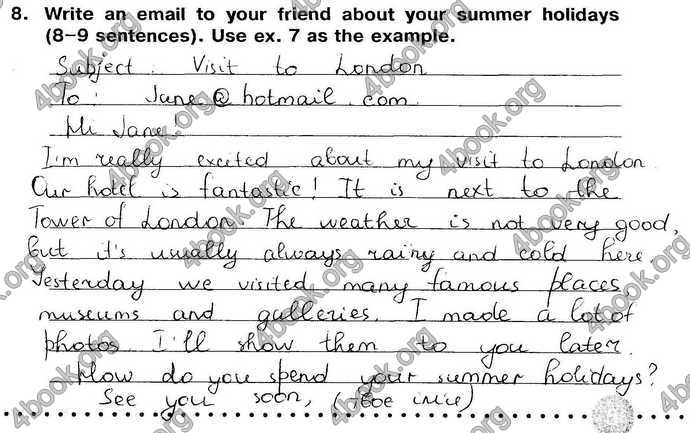 8. Write an email to your friend about your summer holidays
(8–9 sentences). Use ex. 7 as the example.
Subject: Visit to London
To: Jane@hotmail.com
Hi Jane!
I'm really excited about my visit to London.
Our hotel is fantastic! It is next to the
Tower of London. The weather is not very good,
but it's usually always rainy and cold here.
Yesterday we visited many famous places,
museums and galleries. I made a lot of
photos. I'll show them to you later.
How do you spend your summer holidays?
See you soon, (твоє ім'я)
4book.org